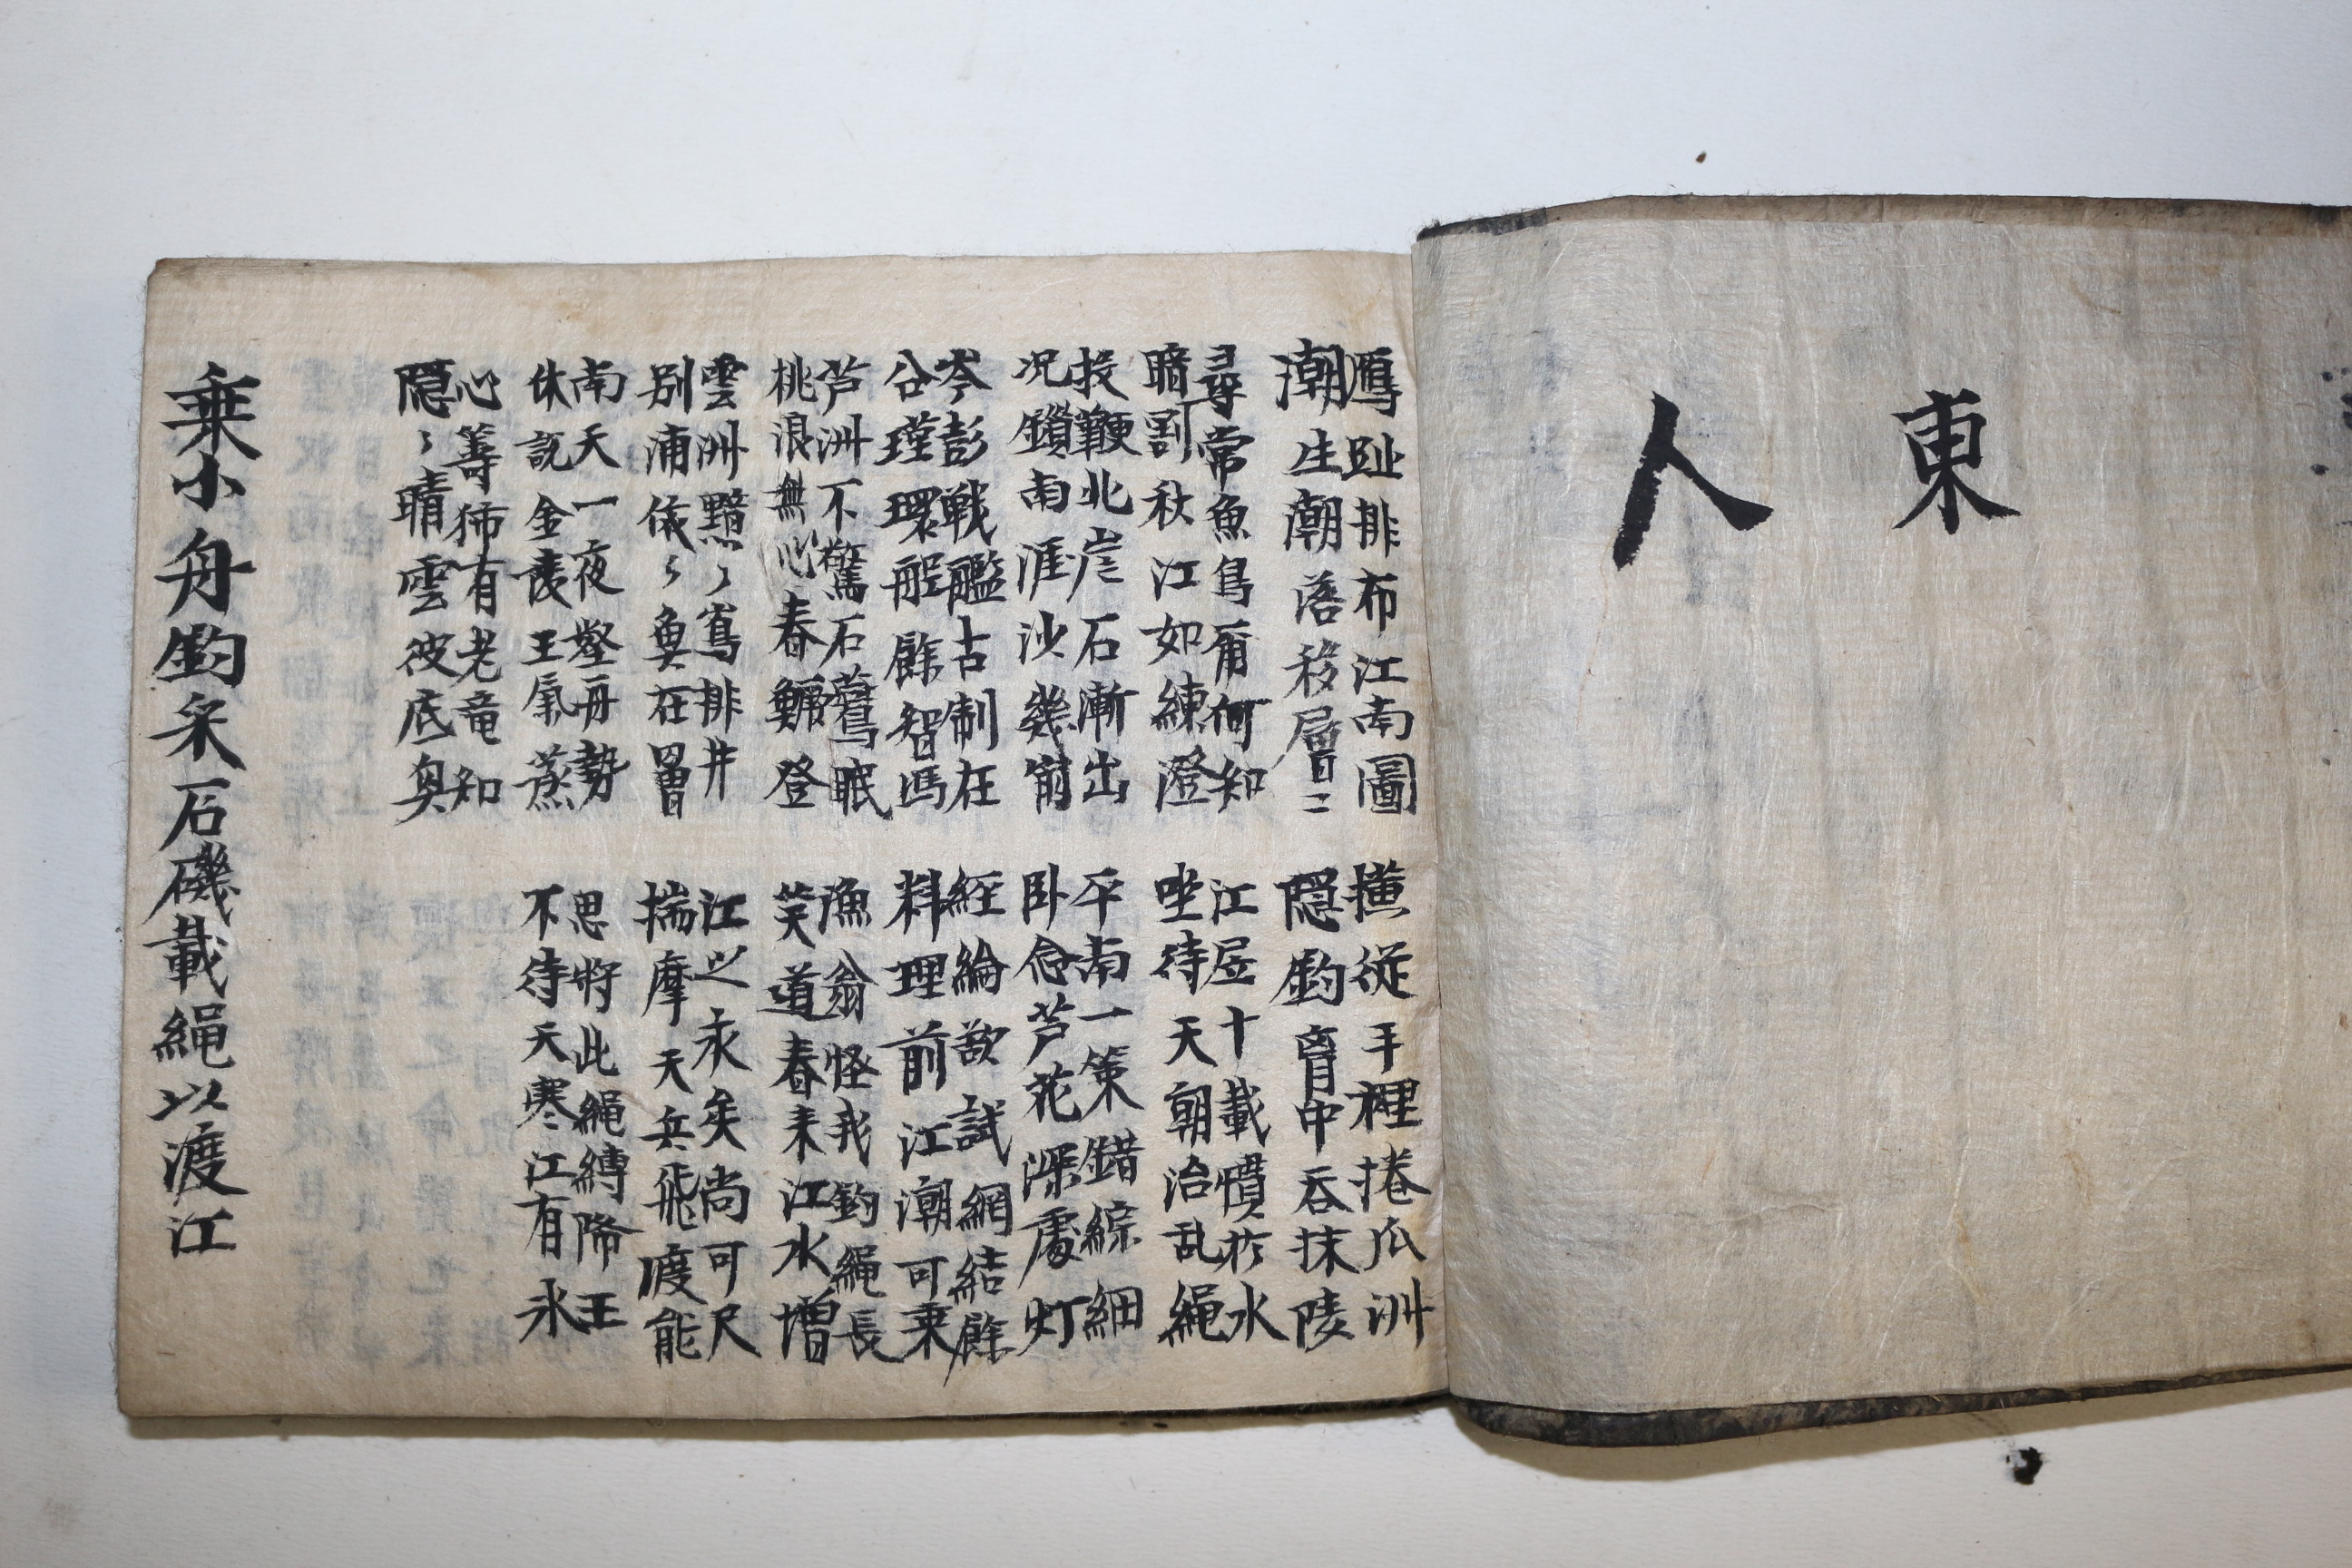 東
人
鴈趾排布江南圖
潮生潮落移層二
橫從手裡捲瓜洲
隱釣胷中呑抹陵
尋常魚鳥爾何知
暗割秋江如練澄
江居十載慣於水
坐待天朝治乱繩
投鞭北岸石漸出
况鎖南涯沙幾崩
平南一策錯綜細
卧念芦花深處灯
岑彭戦艦古制在
公瑾環船餘智馮
經綸欲試網結餘
料理前江潮可乘
芦洲不驚石鷺眠
桃浪無心春鱖登
漁翁怪我釣繩長
笑道春来江水增
雲洲黯〻鳥排井
別浦依〻魚在罾
江之永矣尚可尺
揣摩天兵飛渡能
南天一夜壑舟勢
休説金陵王氣蒸
思將此繩縛降王
不待天寒江有氷
心籌有老竜知
隱〻晴雲彼底奥
乘小舟釣采石磯載繩以渡江